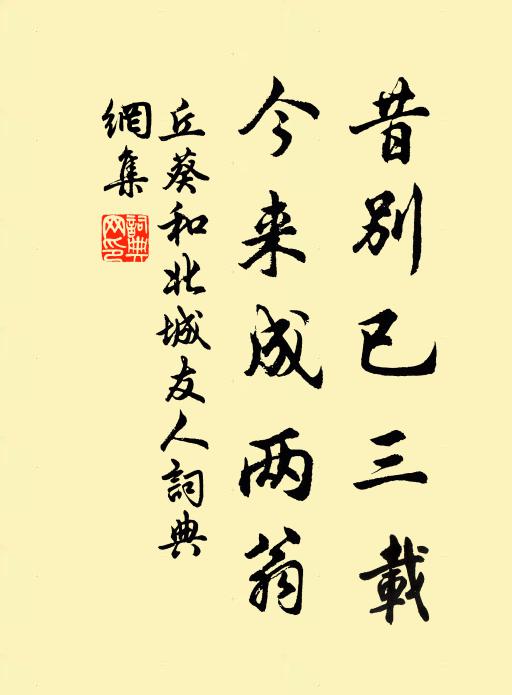 昔别已三載
今来成两翁
丘葵和北城友人詞典
網集
詞典
网印